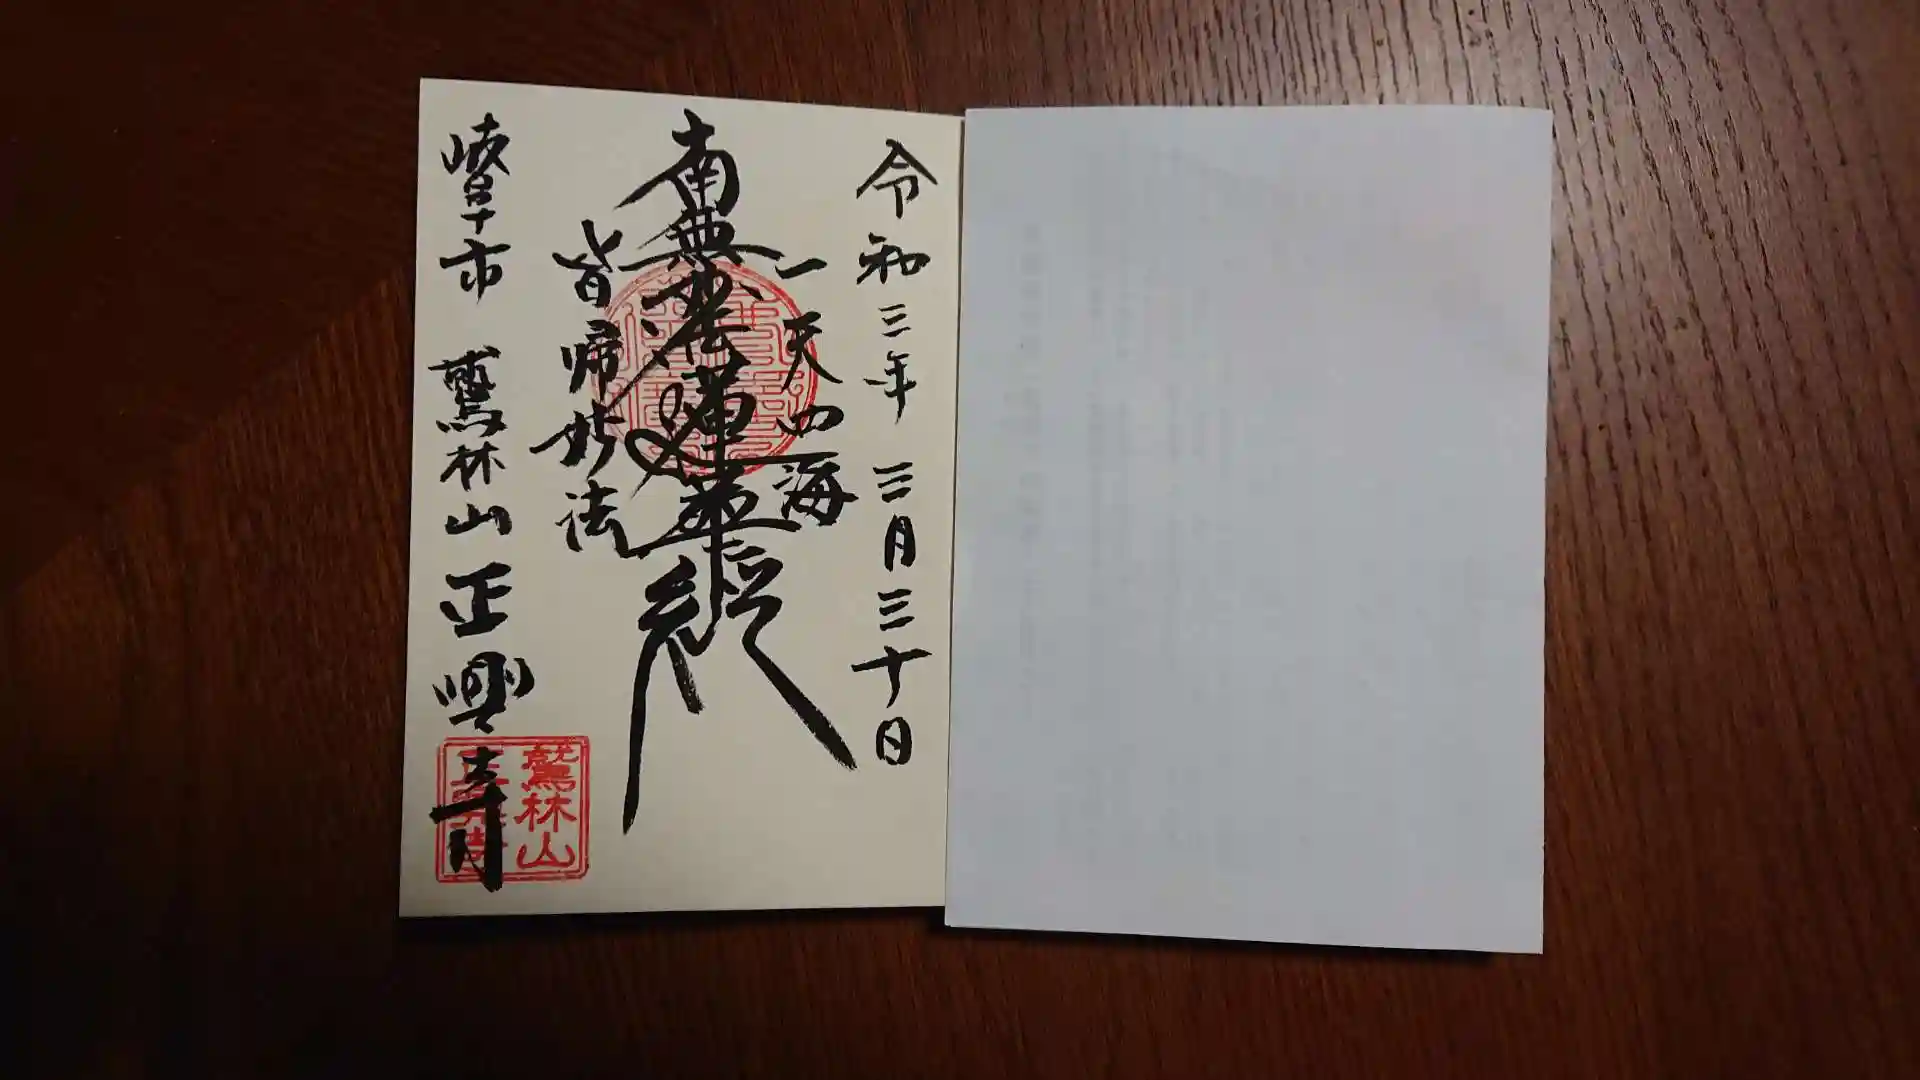 令和三年 三月三十日
一天四海
南無妙法蓮華経
皆帰妙法
岐阜市 鷲林山 正興寺
鷲林山